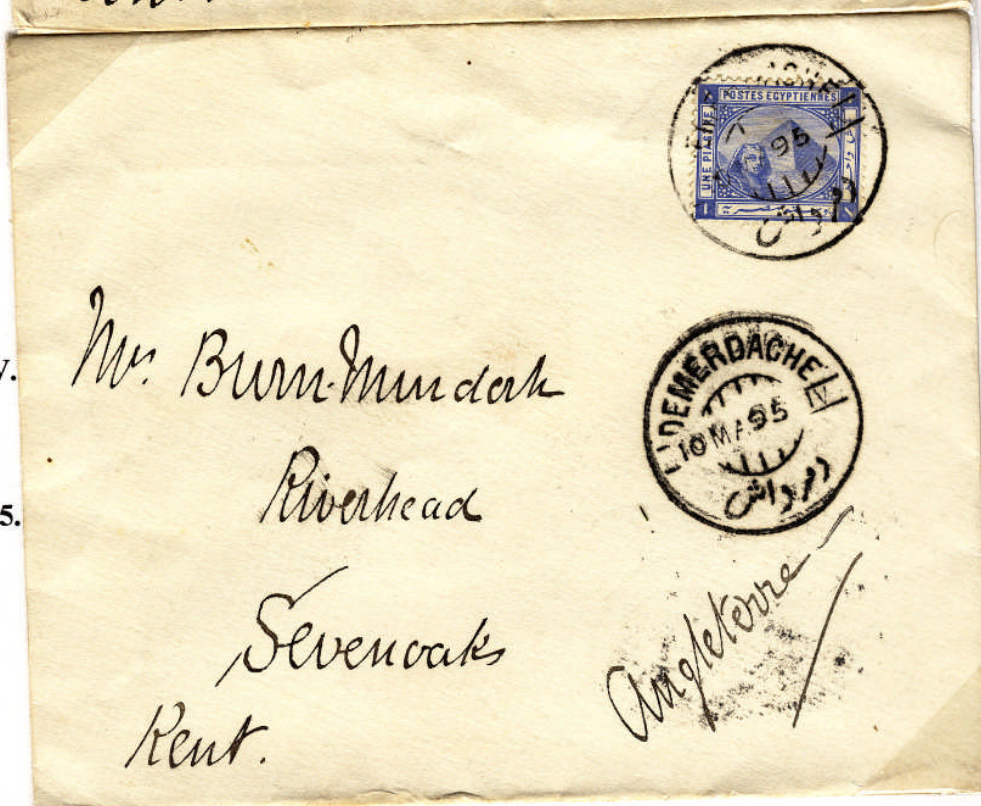 POSTES EGYPTIENNES
UNE PIASTRE
95
دمرداش
Mrs. Burn-Murdoch
Riverhead
Sevenoaks
Kent.
DEMERDACHE
10 MA 95
دمرداش
Angleterre
V.
5.